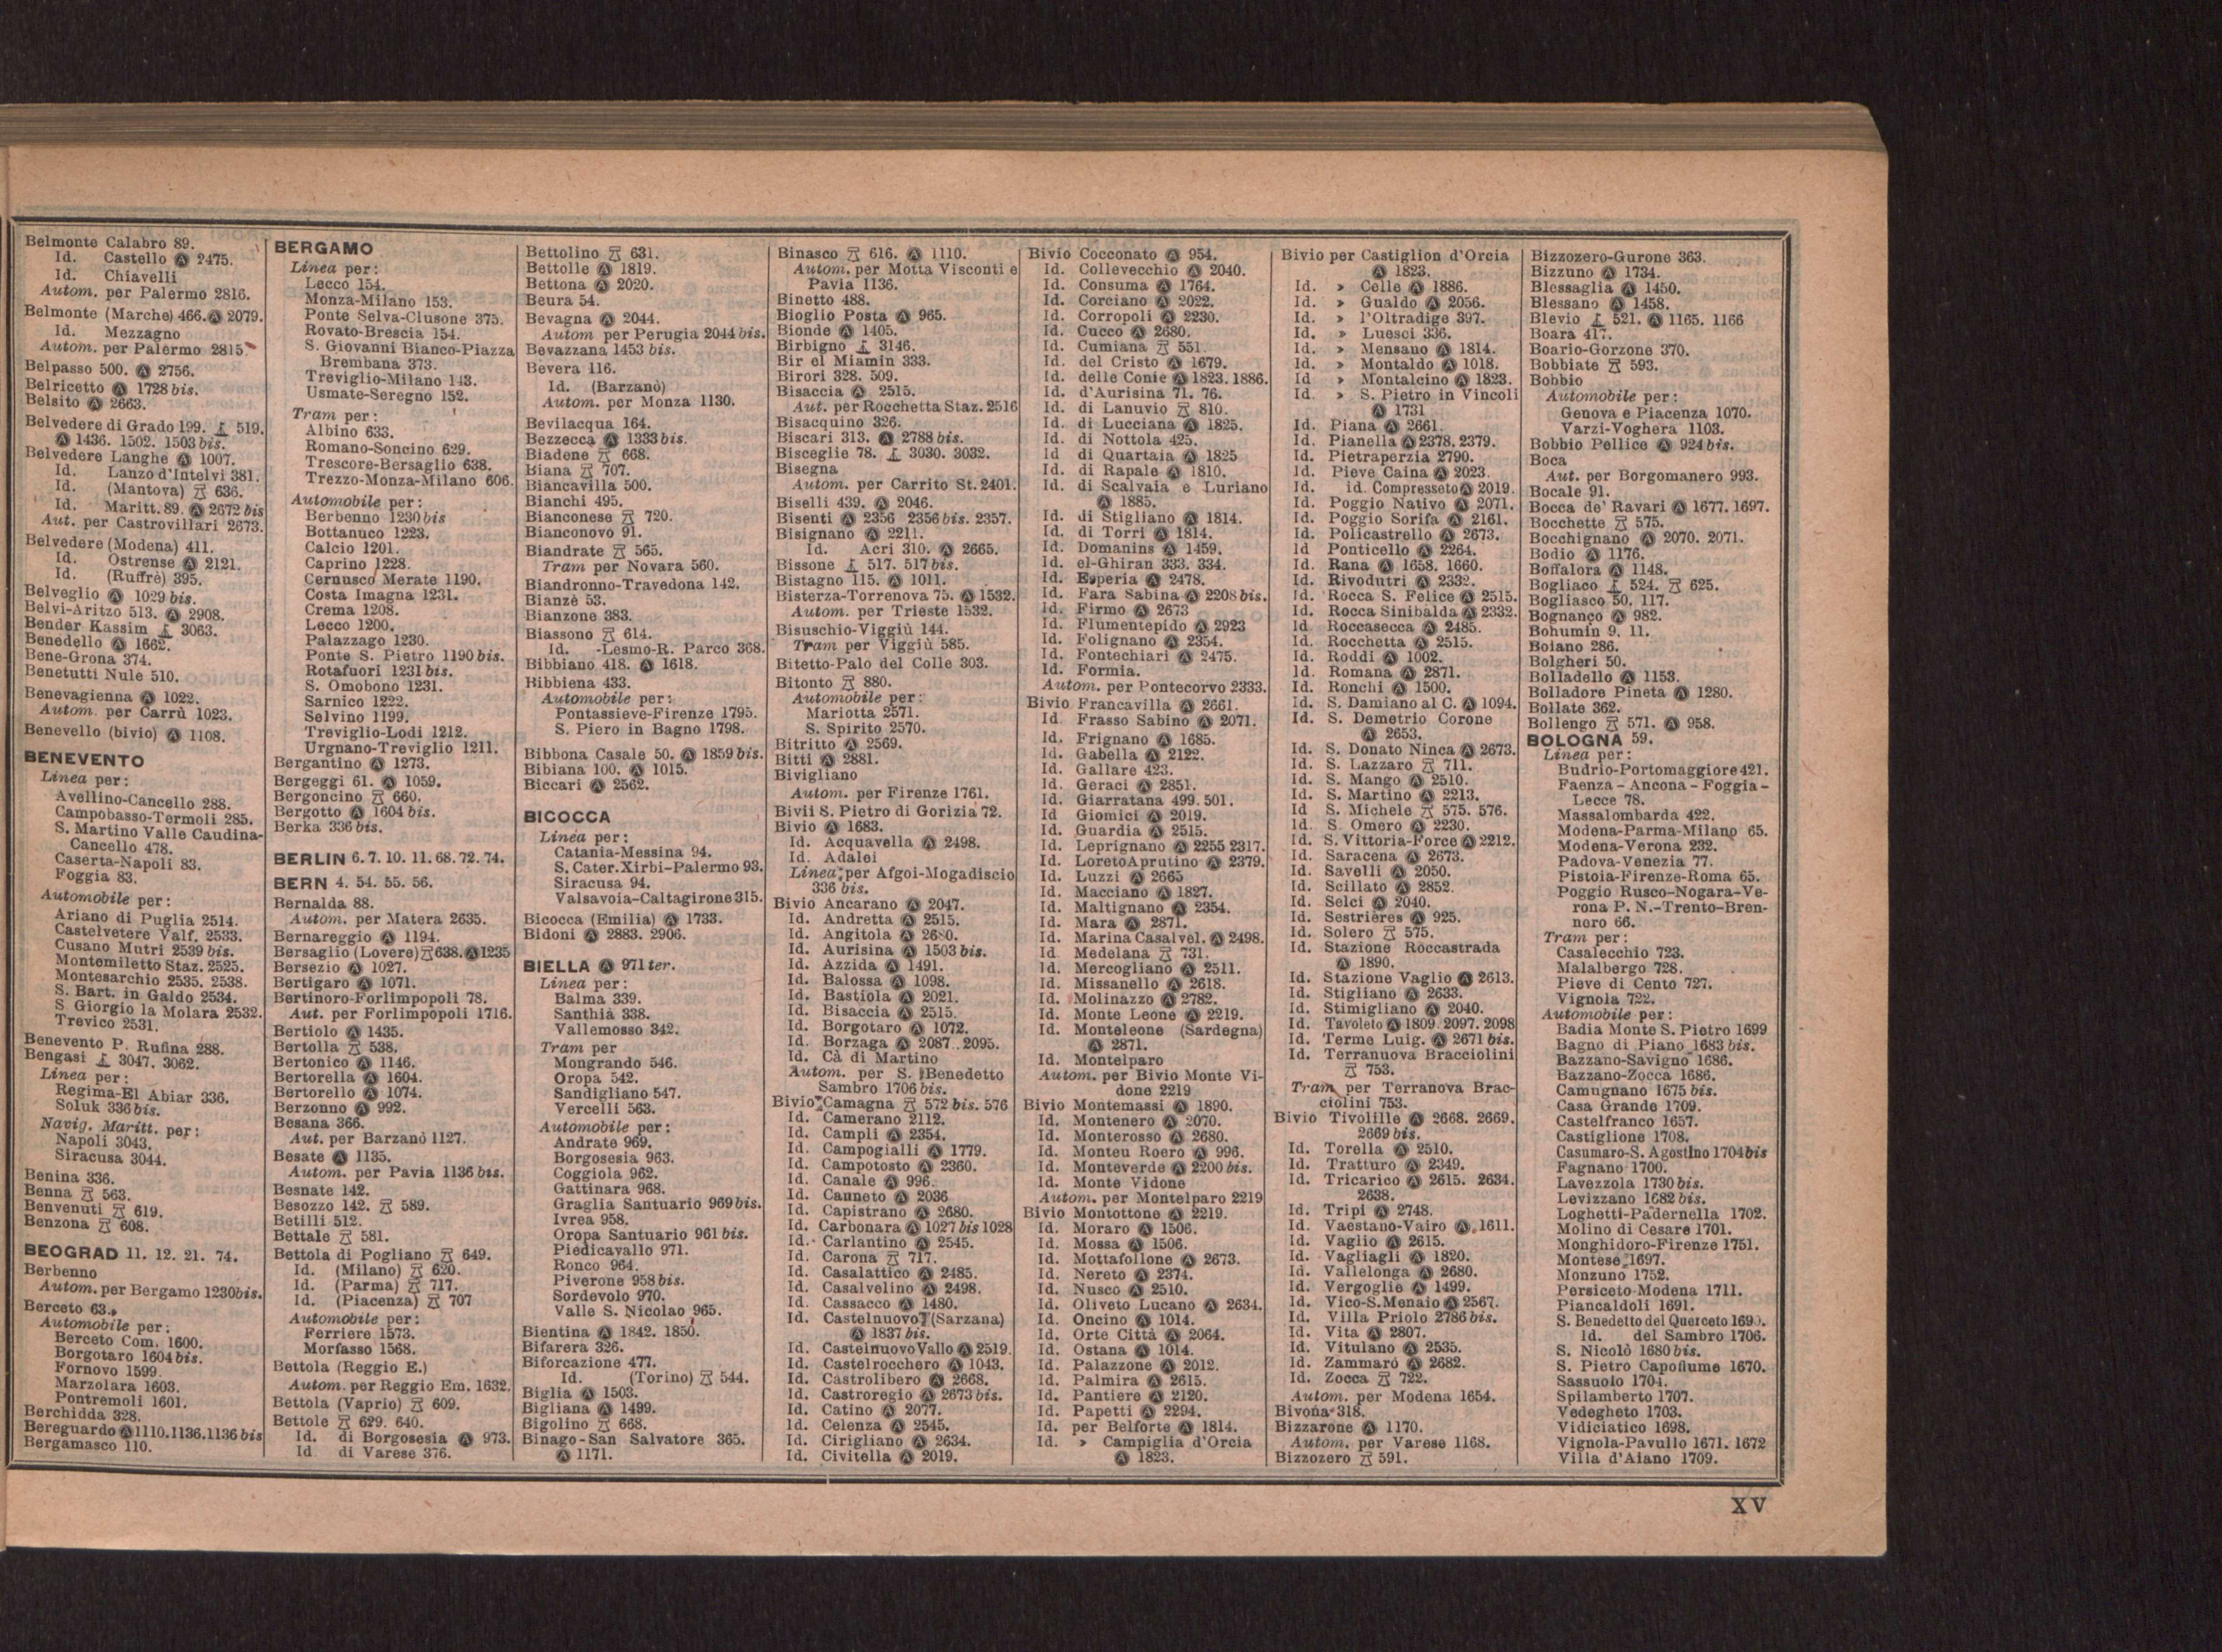 Belmonte Calabro 89.
Id. Castello Ⓐ 2475.
Id. Chiavelli
Autom. per Palermo 2816.
Belmonte (Marche) 466. Ⓐ 2079.
Id. Mezzagno
Autom. per Palermo 2815
Belpasso 500. Ⓐ 2756.
Belricetto Ⓐ 1728 bis.
Belsito Ⓐ 2663.
Belvedere di Grado 199. 519.
Ⓐ 1436. 1502. 1503 bis.
Belvedere Langhe Ⓐ 1007.
Id. Lanzo d'Intelvi 381.
Id. (Mantova) 636.
Id. Maritt. 89. Ⓐ 2672 bis
Aut. per Castrovillari 2673.
Belvedere (Modena) 411.
Id. Ostrense Ⓐ 2121.
Id. (Ruffrè) 395.
Belveglio Ⓐ 1029 bis.
Belvi-Aritzo 513. Ⓐ 2908.
Bender Kassim 3063.
Benedello Ⓐ 1662.
Bene-Grona 374.
Benetutti Nule 510.
Benevagienna Ⓐ 1022.
Autom. per Carrù 1023.
Benevello (bivio) Ⓐ 1108.
BENEVENTO
Linea per:
Avellino-Cancello 288.
Campobasso-Termoli 285.
S. Martino Valle Caudina-
Cancello 478.
Caserta-Napoli 83.
Foggia 83.
Automobile per:
Ariano di Puglia 2514.
Castelvetere Valf. 2533.
Cusano Mutri 2539 bis.
Montemiletto Staz. 2525.
Montesarchio 2535. 2538.
S. Bart. in Galdo 2534.
S Giorgio la Molara 2532.
Trevico 2531.
Benevento P. Rufina 288.
Bengasi 3047. 3062.
Linea per:
Regima-El Abiar 336.
Soluk 336 bis.
Navig. Maritt. per:
Napoli 3043.
Siracusa 3044.
Benina 336.
Benna 563.
Benvenuti 619.
Benzona 608.
BEOGRAD 11. 12. 21. 74.
Berbenno
Autom. per Bergamo 1230bis.
Berceto 63.
Automobile per:
Berceto Com. 1600.
Borgotaro 1604 bis.
Fornovo 1599.
Marzolara 1603.
Pontremoli 1601.
Berchidda 328.
Bereguardo Ⓐ 1110.1136.1136 bis
Bergamasco 110.
BERGAMO
Linea per:
Lecco 154.
Monza-Milano 153.
Ponte Selva-Clusone 375.
Rovato-Brescia 154.
S. Giovanni Bianco-Piazza
Brembana 373.
Treviglio-Milano 143.
Usmate-Seregno 152.
Tram per:
Albino 633.
Romano-Soncino 629.
Trescore-Bersaglio 638.
Trezzo-Monza-Milano 606.
Automobile per:
Berbenno 1230 bis
Bottanuco 1223.
Calcio 1201.
Caprino 1228.
Cernusco Merate 1190.
Costa Imagna 1231.
Crema 1208.
Lecco 1200.
Palazzago 1230.
Ponte S. Pietro 1190 bis.
Rotafuori 1231 bis.
S. Omobono 1231.
Sarnico 1222.
Selvino 1199.
Treviglio-Lodi 1212.
Urgnano-Treviglio 1211.
Bergantino Ⓐ 1273.
Bergeggi 61. Ⓐ 1059.
Bergoncino 660.
Bergotto Ⓐ 1604 bis.
Berka 336 bis.
BERLIN 6. 7. 10. 11. 68. 72. 74.
BERN 4. 54. 55. 56.
Bernalda 88.
Autom. per Matera 2635.
Bernareggio Ⓐ 1194.
Bersaglio (Lovere) 638. Ⓐ 1235
Bersezio Ⓐ 1027.
Bertigaro Ⓐ 1071.
Bertinoro-Forlimpopoli 78.
Aut. per Forlimpopoli 1716.
Bertiolo Ⓐ 1435.
Bertolla 538.
Bertonico Ⓐ 1146.
Bertorella Ⓐ 1604.
Bertorello Ⓐ 1074.
Berzonno Ⓐ 992.
Besana 366.
Aut. per Barzanò 1127.
Besate Ⓐ 1135.
Autom. per Pavia 1136 bis.
Besnate 142.
Besozzo 142. 589.
Betilli 512.
Bettale 581.
Bettola di Pogliano 649.
Id. (Milano) 620.
Id. (Parma) 717.
Id. (Piacenza) 707
Automobile per:
Ferriere 1573.
Morfasso 1568.
Bettola (Reggio E.)
Autom. per Reggio Em. 1632.
Bettola (Vaprio) 609.
Bettole 629. 640.
Id. di Borgosesia Ⓐ 973.
Id di Varese 376.
Bettolino 631.
Bettolle Ⓐ 1819.
Bettona Ⓐ 2020.
Beura 54.
Bevagna Ⓐ 2044.
Autom per Perugia 2044 bis.
Bevazzana 1453 bis.
Bevera 116.
Id. (Barzanò)
Autom. per Monza 1130.
Bevilacqua 164.
Bezzecca Ⓐ 1333 bis.
Biadene 668.
Biana 707.
Biancavilla 500.
Bianchi 495.
Bianconese 720.
Bianconovo 91.
Biandrate 565.
Tram per Novara 560.
Biandronno-Travedona 142.
Bianzè 53.
Bianzone 383.
Biassono 614.
Id. -Lesmo-R. Parco 368.
Bibbiano 418. Ⓐ 1618.
Bibbiena 433.
Automobile per:
Pontassieve-Firenze 1795.
S. Piero in Bagno 1798.
Bibbona Casale 50. Ⓐ 1859 bis.
Bibiana 100. Ⓐ 1015.
Biccari Ⓐ 2562.
BICOCCA
Linea per:
Catania-Messina 94.
S. Cater. Xirbi-Palermo 93.
Siracusa 94.
Valsavoia-Caltagirone 315.
Bicocca (Emilia) Ⓐ 1733.
Bidoni Ⓐ 2883. 2906.
BIELLA Ⓐ 971 ter.
Linea per:
Balma 339.
Santhià 338.
Vallemosso 342.
Tram per
Mongrando 546.
Oropa 542.
Sandigliano 547.
Vercelli 563.
Automobile per:
Andrate 969.
Borgosesia 963.
Coggiola 962.
Gattinara 968.
Graglia Santuario 969 bis.
Ivrea 958.
Oropa Santuario 961 bis.
Piedicavallo 971.
Ronco 964.
Piverone 958 bis.
Sordevolo 970.
Valle S. Nicolao 965.
Bientina Ⓐ 1842. 1850.
Bifarera 326.
Biforcazione 477.
Id. (Torino) 544.
Biglia Ⓐ 1503.
Bigliana Ⓐ 1499.
Bigolino 668.
Binago-San Salvatore 365.
Ⓐ 1171.
Binasco 616. Ⓐ 1110.
Autom. per Motta Visconti e
Pavia 1136.
Binetto 488.
Bioglio Posta Ⓐ 965.
Bionde Ⓐ 1405.
Birbigno 3146.
Bir el Miamin 333.
Birori 328. 509.
Bisaccia Ⓐ 2515.
Aut. per Rocchetta Staz. 2516
Bisacquino 326.
Biscari 313. Ⓐ 2788 bis.
Bisceglie 78. 3030. 3032.
Bisegna
Autom. per Carrito St. 2401.
Biselli 439. Ⓐ 2046.
Bisenti Ⓐ 2356 2356 bis. 2357.
Bisignano Ⓐ 2211.
Id. Acri 310. Ⓐ 2665.
Bissone 517. 517 bis.
Bistagno 115. Ⓐ 1011.
Bisterza-Torrenova 75. Ⓐ 1532.
Autom. per Trieste 1532.
Bisuschio-Viggiù 144.
Tram per Viggiù 585.
Bitetto-Palo del Colle 303.
Bitonto 880.
Automobile per:
Mariotta 2571.
S. Spirito 2570.
Bitritto Ⓐ 2569.
Bitti Ⓐ 2881.
Bivigliano
Autom. per Firenze 1761.
Bivii S. Pietro di Gorizia 72.
Bivio Ⓐ 1683.
Id. Acquavella Ⓐ 2498.
Id. Adalei
Linea per Afgoi-Mogadiscio
336 bis.
Bivio Ancarano Ⓐ 2047.
Id. Andretta Ⓐ 2515.
Id. Angitola Ⓐ 2680.
Id. Aurisina Ⓐ 1503 bis.
Id. Azzida Ⓐ 1491.
Id. Balossa Ⓐ 1098.
Id. Bastiola Ⓐ 2021.
Id. Bisaccia Ⓐ 2515.
Id. Borgotaro Ⓐ 1072.
Id. Borzaga Ⓐ 2087. 2095.
Id. Cà di Martino
Autom. per S. Benedetto
Sambro 1706 bis.
Bivio Camagna 572 bis. 576
Id. Camerano 2112.
Id. Campli Ⓐ 2354.
Id. Campogialli Ⓐ 1779.
Id. Campotosto Ⓐ 2360.
Id. Canale Ⓐ 996.
Id. Canneto Ⓐ 2036
Id. Capistrano Ⓐ 2680.
Id. Carbonara Ⓐ 1027 bis 1028
Id. Carlantino Ⓐ 2545.
Id. Carona 717.
Id. Casalattico Ⓐ 2485.
Id. Casalvelino Ⓐ 2498.
Id. Cassacco Ⓐ 1480.
Id. Castelnuovo (Sarzana)
Ⓐ 1837 bis.
Id. Castelnuovo Vallo Ⓐ 2519.
Id. Castelrocchero Ⓐ 1043.
Id. Castrolibero Ⓐ 2668.
Id. Castroregio Ⓐ 2673 bis.
Id. Catino Ⓐ 2077.
Id. Celenza Ⓐ 2545.
Id. Cirigliano Ⓐ 2634.
Id. Civitella Ⓐ 2019.
Bivio Cocconato Ⓐ 954.
Id. Collevecchio Ⓐ 2040.
Id. Consuma Ⓐ 1764.
Id. Corciano Ⓐ 2022.
Id. Corropoli Ⓐ 2230.
Id. Cucco Ⓐ 2680.
Id. Cumiana 551.
Id. del Cristo Ⓐ 1679.
Id. delle Conie Ⓐ 1823. 1886.
Id. d'Aurisina 71. 76.
Id. di Lanuvio 810.
Id. di Lucciana Ⓐ 1825.
Id. di Nottola 425.
Id di Quartaia Ⓐ 1825
Id. di Rapale Ⓐ 1810.
Id. di Scalvaia e Luriano
Ⓐ 1885.
Id. di Stigliano Ⓐ 1814.
Id. di Torri Ⓐ 1814.
Id. Domanins Ⓐ 1459.
Id. el-Ghiran 333. 334.
Id. Esperia Ⓐ 2478.
Id. Fara Sabina Ⓐ 2208 bis.
Id. Firmo Ⓐ 2673
Id. Flumentepido Ⓐ 2923
Id. Folignano Ⓐ 2354.
Id. Fontechiari Ⓐ 2475.
Id. Formia.
Autom. per Pontecorvo 2333.
Bivio Francavilla Ⓐ 2661.
Id Frasso Sabino Ⓐ 2071.
Id. Frignano Ⓐ 1685.
Id. Gabella Ⓐ 2122.
Id. Gallare 423.
Id. Geraci Ⓐ 2851.
Id. Giarratana 499. 501.
Id Giomici Ⓐ 2019.
Id. Guardia Ⓐ 2515.
Id. Leprignano Ⓐ 2255 2317.
Id. Loreto Aprutino Ⓐ 2379.
Id. Luzzi Ⓐ 2665
Id. Macciano Ⓐ 1827.
Id. Maltignano Ⓐ 2354.
Id. Mara Ⓐ 2871.
Id. Marina Casalvel. Ⓐ 2498.
Id. Medelana 731.
Id. Mercogliano Ⓐ 2511.
Id. Missanello Ⓐ 2618.
Id. Molinazzo Ⓐ 2782.
Id. Monte Leone Ⓐ 2219.
Id. Monteleone (Sardegna)
Ⓐ 2871.
Id. Montelparo
Autom. per Bivio Monte Vi-
done 2219
Bivio Montemassi Ⓐ 1890.
Id. Montenero Ⓐ 2070.
Id. Monterosso Ⓐ 2680.
Id. Monteu Roero Ⓐ 996.
Id. Monteverde Ⓐ 2200 bis.
Id. Monte Vidone
Autom. per Montelparo 2219
Bivio Montottone Ⓐ 2219.
Id. Moraro Ⓐ 1506.
Id. Mossa Ⓐ 1506.
Id. Mottafollone Ⓐ 2673.
Id. Nereto Ⓐ 2374.
Id. Nusco Ⓐ 2510.
Id. Oliveto Lucano Ⓐ 2634.
Id. Oncino Ⓐ 1014.
Id. Orte Città Ⓐ 2064.
Id. Ostana Ⓐ 1014.
Id. Palazzone Ⓐ 2012.
Id. Palmira Ⓐ 2615.
Id. Pantiere Ⓐ 2120.
Id. Papetti Ⓐ 2294.
Id. per Belforte Ⓐ 1814.
Id. » Campiglia d'Orcia
Ⓐ 1823.
Bivio per Castiglion d'Orcia
Ⓐ 1823.
Id. » Celle Ⓐ 1886.
Id. » Gualdo Ⓐ 2056.
Id. » l'Oltradige 397.
Id. » Luesci 336.
Id. » Mensano Ⓐ 1814.
Id. » Montaldo Ⓐ 1018.
Id » Montalcino Ⓐ 1823.
Id. » S. Pietro in Vincoli
Ⓐ 1731
Id. Piana Ⓐ 2661.
Id. Pianella Ⓐ 2378. 2379.
Id. Pietraperzia 2790.
Id. Pieve Caina Ⓐ 2023.
Id. id. Compresseto Ⓐ 2019.
Id. Poggio Nativo Ⓐ 2071.
Id. Poggio Sorifa Ⓐ 2161.
Id. Policastrello Ⓐ 2673.
Id Ponticello Ⓐ 2264.
Id. Rana Ⓐ 1658. 1660.
Id. Rivodutri Ⓐ 2332.
Id. Rocca S. Felice Ⓐ 2515.
Id. Rocca Sinibalda Ⓐ 2332.
Id Roccasecca Ⓐ 2485.
Id. Rocchetta Ⓐ 2515.
Id. Roddi Ⓐ 1002.
Id. Romana Ⓐ 2871.
Id. Ronchi Ⓐ 1500.
Id. S. Damiano al C. Ⓐ 1094.
Id. S. Demetrio Corone
Ⓐ 2653.
Id. S. Donato Ninca Ⓐ 2673.
Id. S. Lazzaro 711.
Id. S. Mango Ⓐ 2510.
Id. S. Martino Ⓐ 2213.
Id S. Michele 575. 576.
Id. S. Omero Ⓐ 2230.
Id. S. Vittoria-Force Ⓐ 2212.
Id. Saracena Ⓐ 2673.
Id. Savelli Ⓐ 2050.
Id. Scillato Ⓐ 2852.
Id. Selci Ⓐ 2040.
Id. Sestrières Ⓐ 925.
Id. Solero 575.
Id. Stazione Roccastrada
Ⓐ 1890.
Id. Stazione Vaglio Ⓐ 2613.
Id. Stigliano Ⓐ 2633.
Id. Stimigliano Ⓐ 2040.
Id. Tavoleto Ⓐ 1809. 2097. 2098
Id. Terme Luig. Ⓐ 2671 bis.
Id. Terranuova Bracciolini
753.
Tram per Terranova Brac-
ciolini 753.
Bivio Tivolille Ⓐ 2668. 2669.
2669 bis.
Id. Torella Ⓐ 2510.
Id. Tratturo Ⓐ 2349.
Id. Tricarico Ⓐ 2615. 2634.
2638.
Id. Tripi Ⓐ 2748.
Id. Vaestano-Vairo Ⓐ 1611.
Id. Vaglio Ⓐ 2615.
Id. Vagliagli Ⓐ 1820.
Id. Vallelonga Ⓐ 2680.
Id. Vergoglie Ⓐ 1499.
Id. Vico-S. Menaio Ⓐ 2567.
Id. Villa Priolo 2786 bis.
Id. Vita Ⓐ 2807.
Id. Vitulano Ⓐ 2535.
Id. Zammarò Ⓐ 2682.
Id. Zocca 722.
Autom. per Modena 1654.
Bivona 318.
Bizzarone Ⓐ 1170.
Autom. per Varese 1168.
Bizzozero 591.
Bizzozero-Gurone 363.
Bizzuno Ⓐ 1734.
Blessaglia Ⓐ 1450.
Blessano Ⓐ 1458.
Blevio 521. Ⓐ 1165. 1166
Boara 417.
Boario-Gorzone 370.
Bobbiate 593.
Bobbio
Automobile per:
Genova e Piacenza 1070.
Varzi-Voghera 1103.
Bobbio Pellice Ⓐ 924 bis.
Boca
Aut. per Borgomanero 993.
Bocale 91.
Bocca de' Ravari Ⓐ 1677. 1697.
Bocchette 575.
Bocchignano Ⓐ 2070. 2071.
Bodio Ⓐ 1176.
Boffalora Ⓐ 1148.
Bogliaco 524. 625.
Bogliasco 50. 117.
Bognanco Ⓐ 982.
Bohumin 9. 11.
Boiano 286.
Bolgheri 50.
Bolladello Ⓐ 1153.
Bolladore Pineta Ⓐ 1280.
Bollate 362.
Bollengo 571. Ⓐ 958.
BOLOGNA 59.
Linea per:
Budrio-Portomaggiore 421.
Faenza - Ancona - Foggia -
Lecce 78.
Massalombarda 422.
Modena-Parma-Milano 65.
Modena-Verona 232.
Padova-Venezia 77.
Pistoia-Firenze-Roma 65.
Poggio Rusco-Nogara-Ve-
rona P. N.-Trento-Bren-
nero 66.
Tram per:
Casalecchio 723.
Malalbergo 728.
Pieve di Cento 727.
Vignola 722.
Automobile per:
Badia Monte S. Pietro 1699
Bagno di Piano 1683 bis.
Bazzano-Savigno 1686.
Bazzano-Zocca 1686.
Camugnano 1675 bis.
Casa Grande 1709.
Castelfranco 1657.
Castiglione 1708.
Casumaro-S. Agostino 1704bis
Fagnano 1700.
Lavezzola 1730 bis.
Levizzano 1682 bis.
Loghetti-Padernella 1702.
Molino di Cesare 1701.
Monghidoro-Firenze 1751.
Montese 1697.
Monzuno 1752.
Persiceto-Modena 1711.
Piancaldoli 1691.
S. Benedetto del Querceto 1690.
Id. del Sambro 1706.
S. Nicolò 1680 bis.
S. Pietro Capofiume 1670.
Sassuolo 1704.
Spilamberto 1707.
Vedegheto 1703.
Vidiciatico 1698.
Vignola-Pavullo 1671. 1672
Villa d'Aiano 1709.
XV